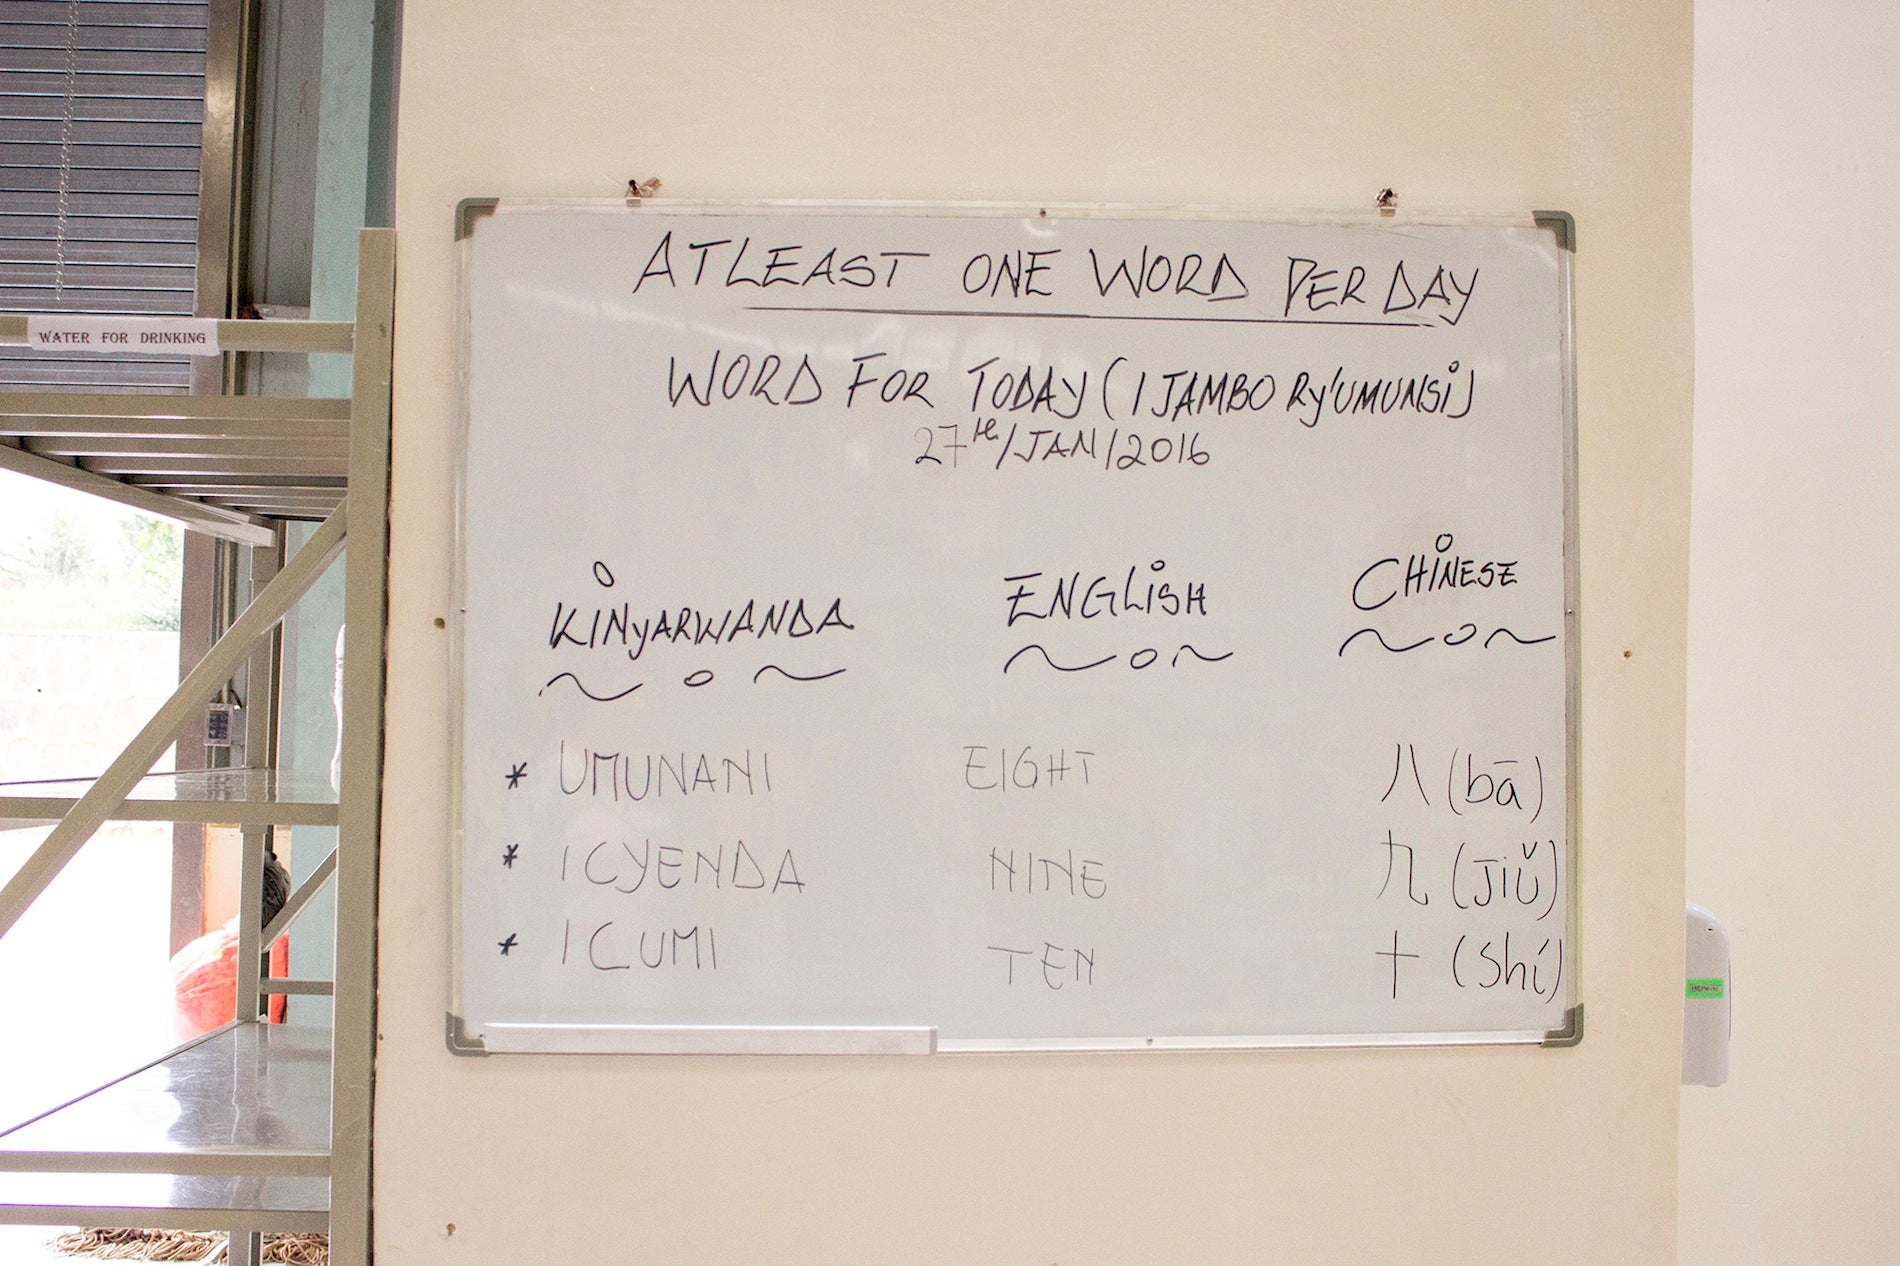 WATER FOR DRINKING
ATLEAST ONE WORD PER DAY
WORD FOR TODAY (IJAMBO RY'UMUNSI)
27th/JAN/2016
KINYARWANDA ENGLISH CHINESE
* UMUNANI EIGHT 八 (bā)
* ICYENDA NINE 九 (Jiǔ)
* ICUMI TEN 十 (Shí)